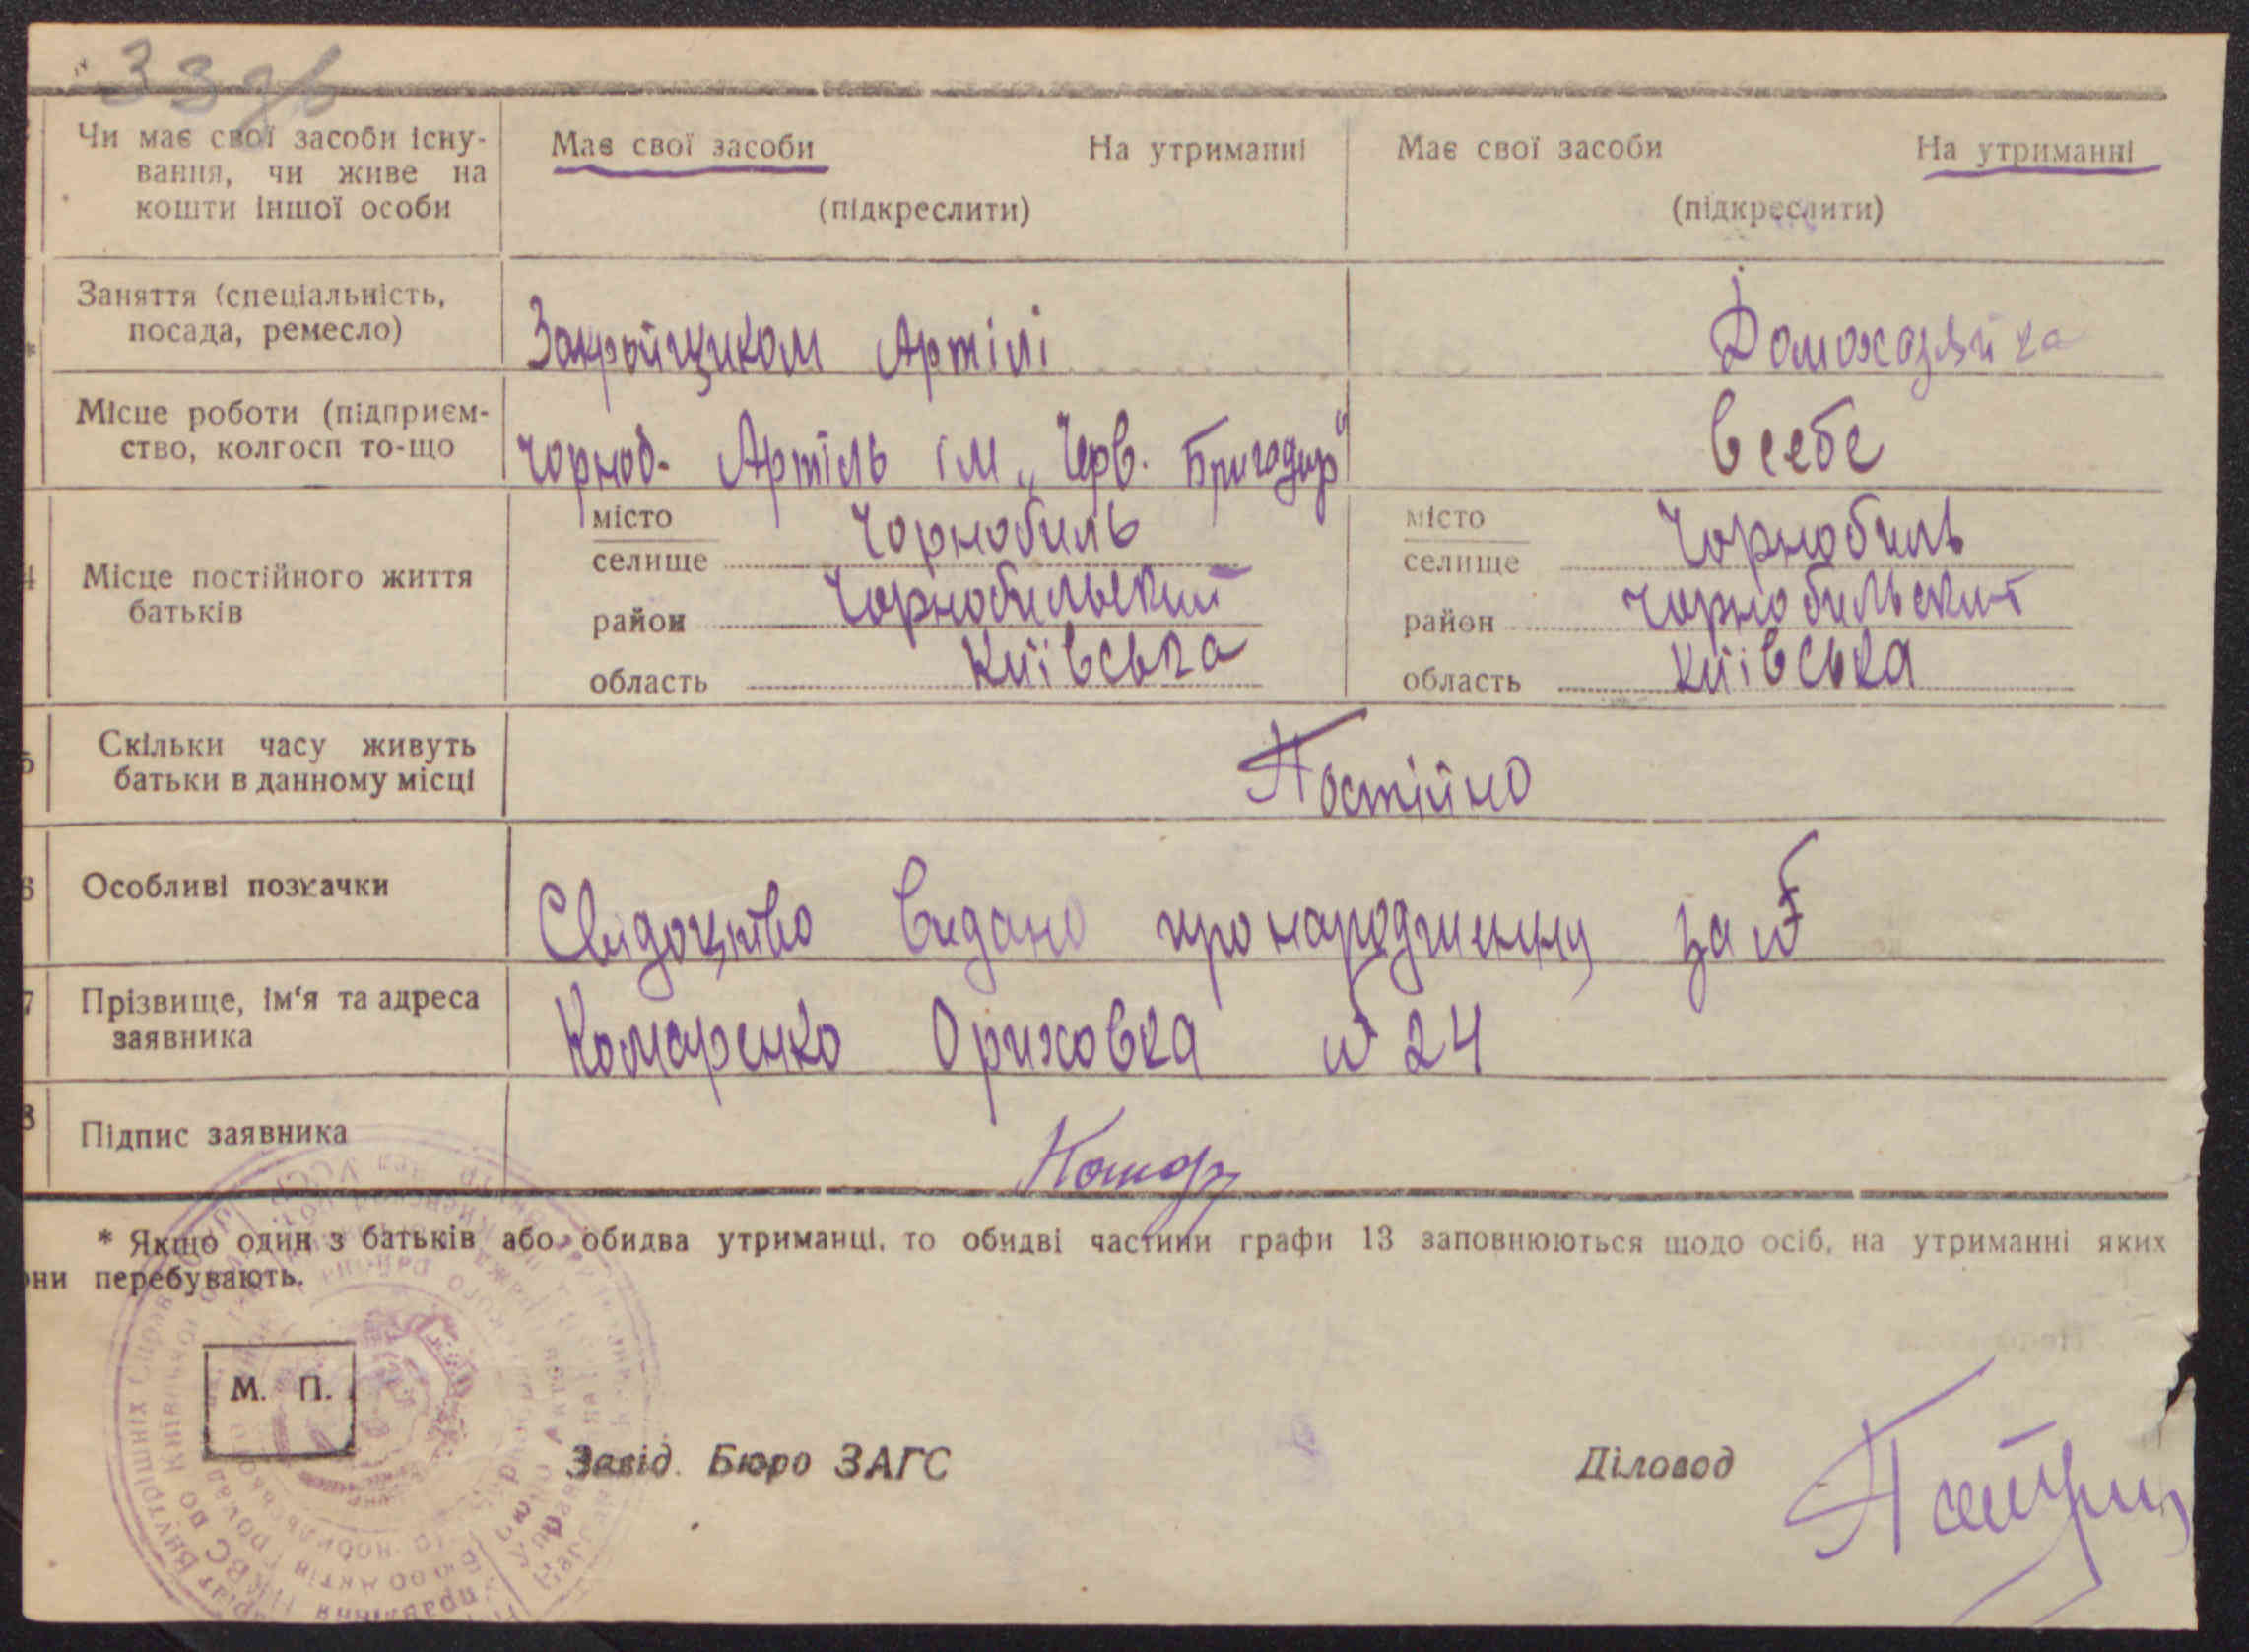 33 зв
Чи має свої засоби існу-
вання, чи живе на
кошти іншої особи
Має свої засоби На утриманні
(підкреслити)
Має свої засоби На утриманні
(підкреслити)
Заняття (спеціальність,
посада, ремесло)
Закройщиком Артілі
Домохазяйка
Місце роботи (підприєм-
ство, колгосп то-що
Чорноб. Артіль ім „Черв. Бригадир“
В себе
4 Місце постійного життя
батьків
місто
селище Чорнобиль
район Чорнобильский
область Київська
місто
селище Чорнобиль
район Чорнобильский
область Київська
5 Скільки часу живуть
батьки в данному місці
Постійно
6 Особливі позначки
Свидоцтво видано про народження за №
7 Прізвище, ім‘я та адреса
заявника
Комаренко Ориховка № 24
8 Підпис заявника
Комар
* Якщо один з батьків або обидва утриманці, то обидві частини графи 13 заповнюються щодо осіб, на утриманні яких
они перебувають.
М. П.
Завід. Бюро ЗАГС
Діловод